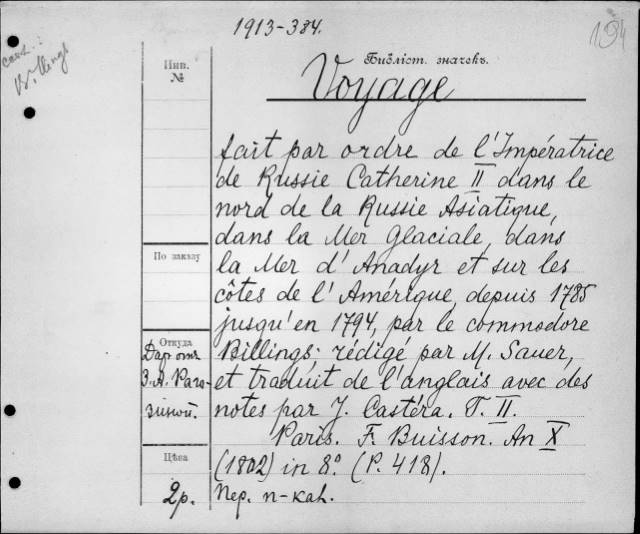 1913-384.
194
Библіот. значекъ.
Инв.
№
Voyage
fait par ordre de l'Impératrice
de Russie Catherine II dans le
nord de la Russie Asiatique,
dans la Mer Glaciale, dans
la Mer d'Anadyr et sur les
côtes de l'Amérique, depuis 1785
jusqu'en 1794, par le commodore
Billings; rédigé par M. Sauer,
et traduit de l'anglais avec des
notes par J. Castéra. T. II.
Paris. F. Buisson. An X
(1802) in 8.° (P. 418).
Пер. п-каж.
По заказу
Откуда
Дар отъ
З. А. Раго-
зиной.
Цѣна
2р.